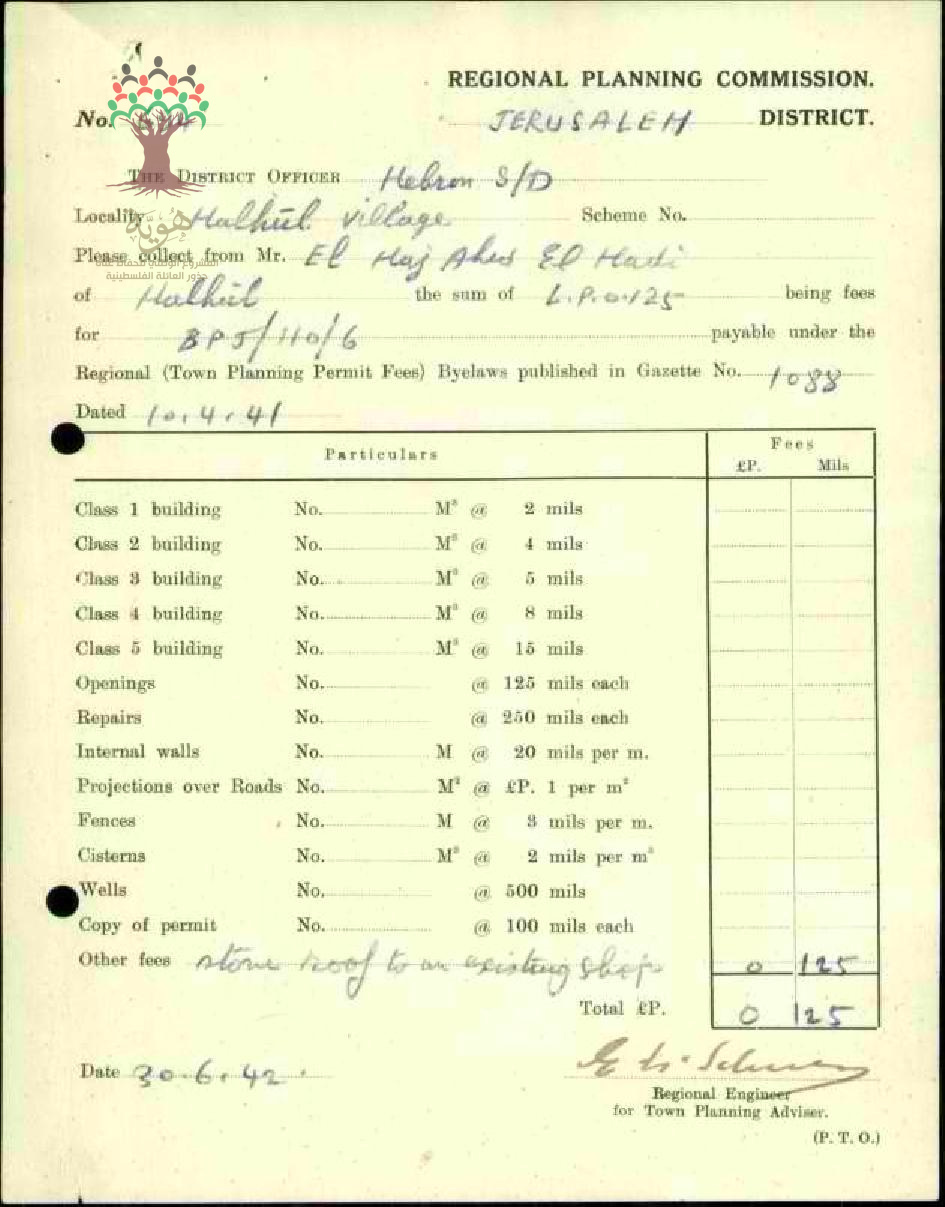 REGIONAL PLANNING COMMISSION.
No. JERUSALEM DISTRICT.
THE DISTRICT OFFICER Hebron S/D
Locality Halhūl village Scheme No.
Please collect from Mr. El Haj El Hadi
هوية
جذور العائلة الفلسطينية
of Halhūl the sum of L.P.0.125 being fees
for BPJ/110/6 payable under the
Regional (Town Planning Permit Fees) Byelaws published in Gazette No. 1088
Dated 10.4.41
Particulars Fees
£P. Mils
Class 1 building No. M² @ 2 mils
Class 2 building No. M² @ 4 mils
Class 3 building No. M² @ 5 mils
Class 4 building No. M² @ 8 mils
Class 5 building No. M² @ 15 mils
Openings No. @ 125 mils each
Repairs No. @ 250 mils each
Internal walls No. M @ 20 mils per m.
Projections over Roads No. M² @ £P. 1 per m²
Fences No. M @ 3 mils per m.
Cisterns No. M³ @ 2 mils per m³
Wells No. @ 500 mils
Copy of permit No. @ 100 mils each
Other fees stone roof to an existing shop 0 125
Total £P. 0 125
Date 30.6.42.
Regional Engineer
for Town Planning Adviser.
(P. T. O.)